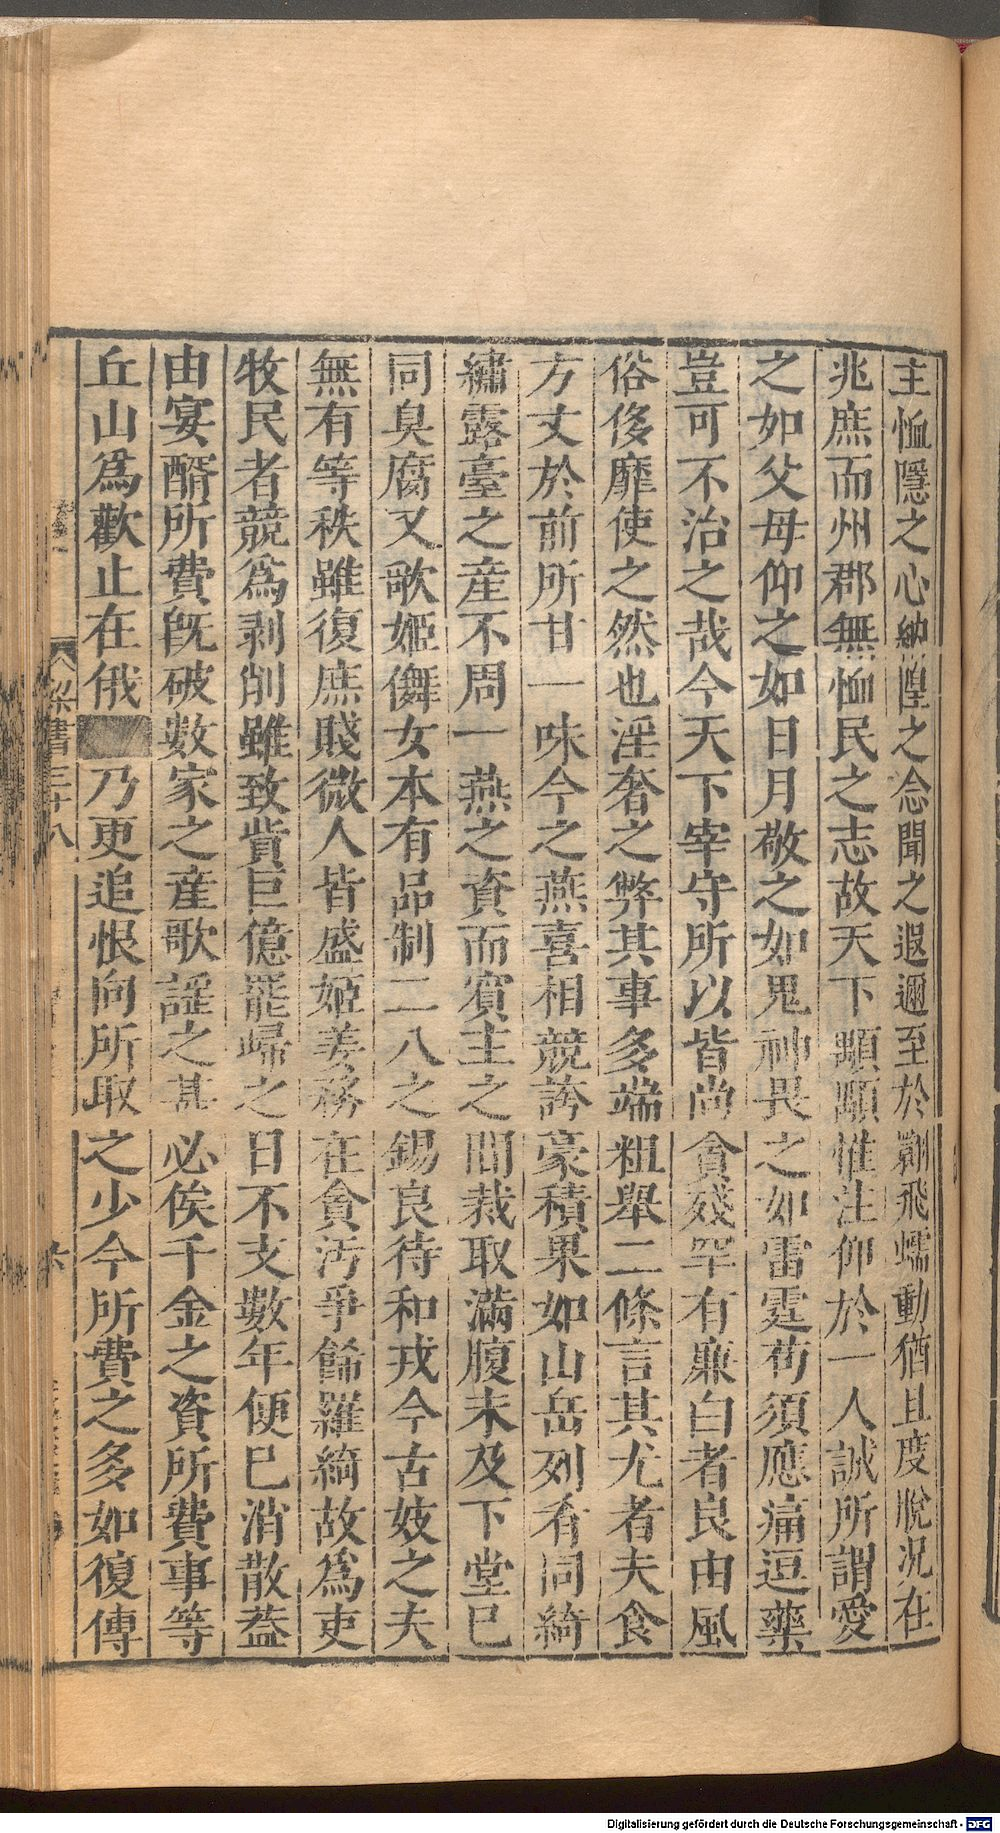 主恤隱之心納隍之念聞之遐邇至於翾飛蠕動猶且度脫况在
兆庶而州郡無恤民之志故天下顒顒惟注仰於一人誠所謂愛
之如父母仰之如日月敬之如鬼神畏之如雷霆苟須應痛逗藥
豈可不治之哉今天下宰守所以皆尚貪殘罕有廉白者良由風
俗侈靡使之然也淫奢之弊其事多端粗舉二條言其尤者夫食
方丈於前所甘一味今之燕喜相競誇豪積果如山岳列肴同綺
繡露臺之產不周一燕之資而賓主之間裁取滿腹未及下堂已
同臭腐又歌姬儛女本有品制二八之錫良待和戎今古妓之夫
無有等秩雖復庶賤微人皆盛姬姜務在貪汚爭餙羅綺故爲吏
牧民者競爲剥削雖致貲巨億罷歸之日不支數年便已消散葢
由宴醑所費旣破數家之產歌謡之具必俟千金之資所費事等
丘山爲歡止在俄乃更追恨向所取之少今所費之多如復傳
梁書三十八
六
Digitalisierung gefördert durch die Deutsche Forschungsgemeinschaft - DFG